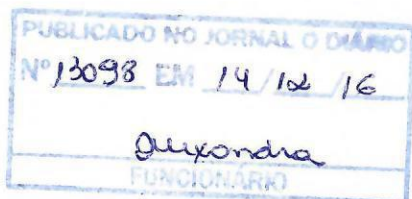 PUBLICADO NO JORNAL O DIÁRIO
Nº 13098 EM 14 / 12 / 16
FUNCIONÁRIO